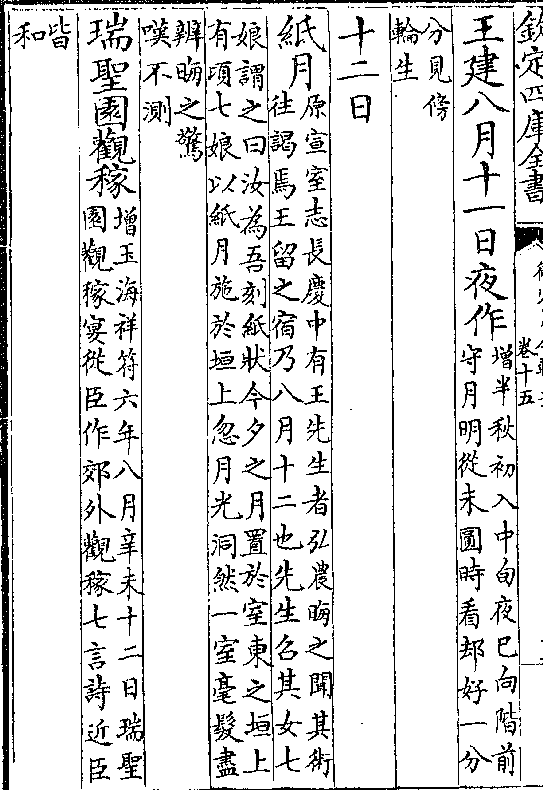 欽定四庫全書
卷十五
王建八月十一日夜作
增半秋初入中旬夜已向階前
守月明從未圓時看却好一分
分見傍
輪生
十二日
紙月
原宣室志長慶中有王先生者弘農晦之聞其術
往謁焉王留之宿乃八月十二也先生召其女七
娘謂之曰汝為吾刻紙狀今夕之月置於室東之垣上
有頃七娘以紙月施於垣上忽月光洞然一室毫髮盡
辨晦之驚
嘆不測
瑞聖園觀稼
增玉海祥符六年八月辛未十二日瑞聖
園觀稼宴從臣作郊外觀稼七言詩近臣
皆
和